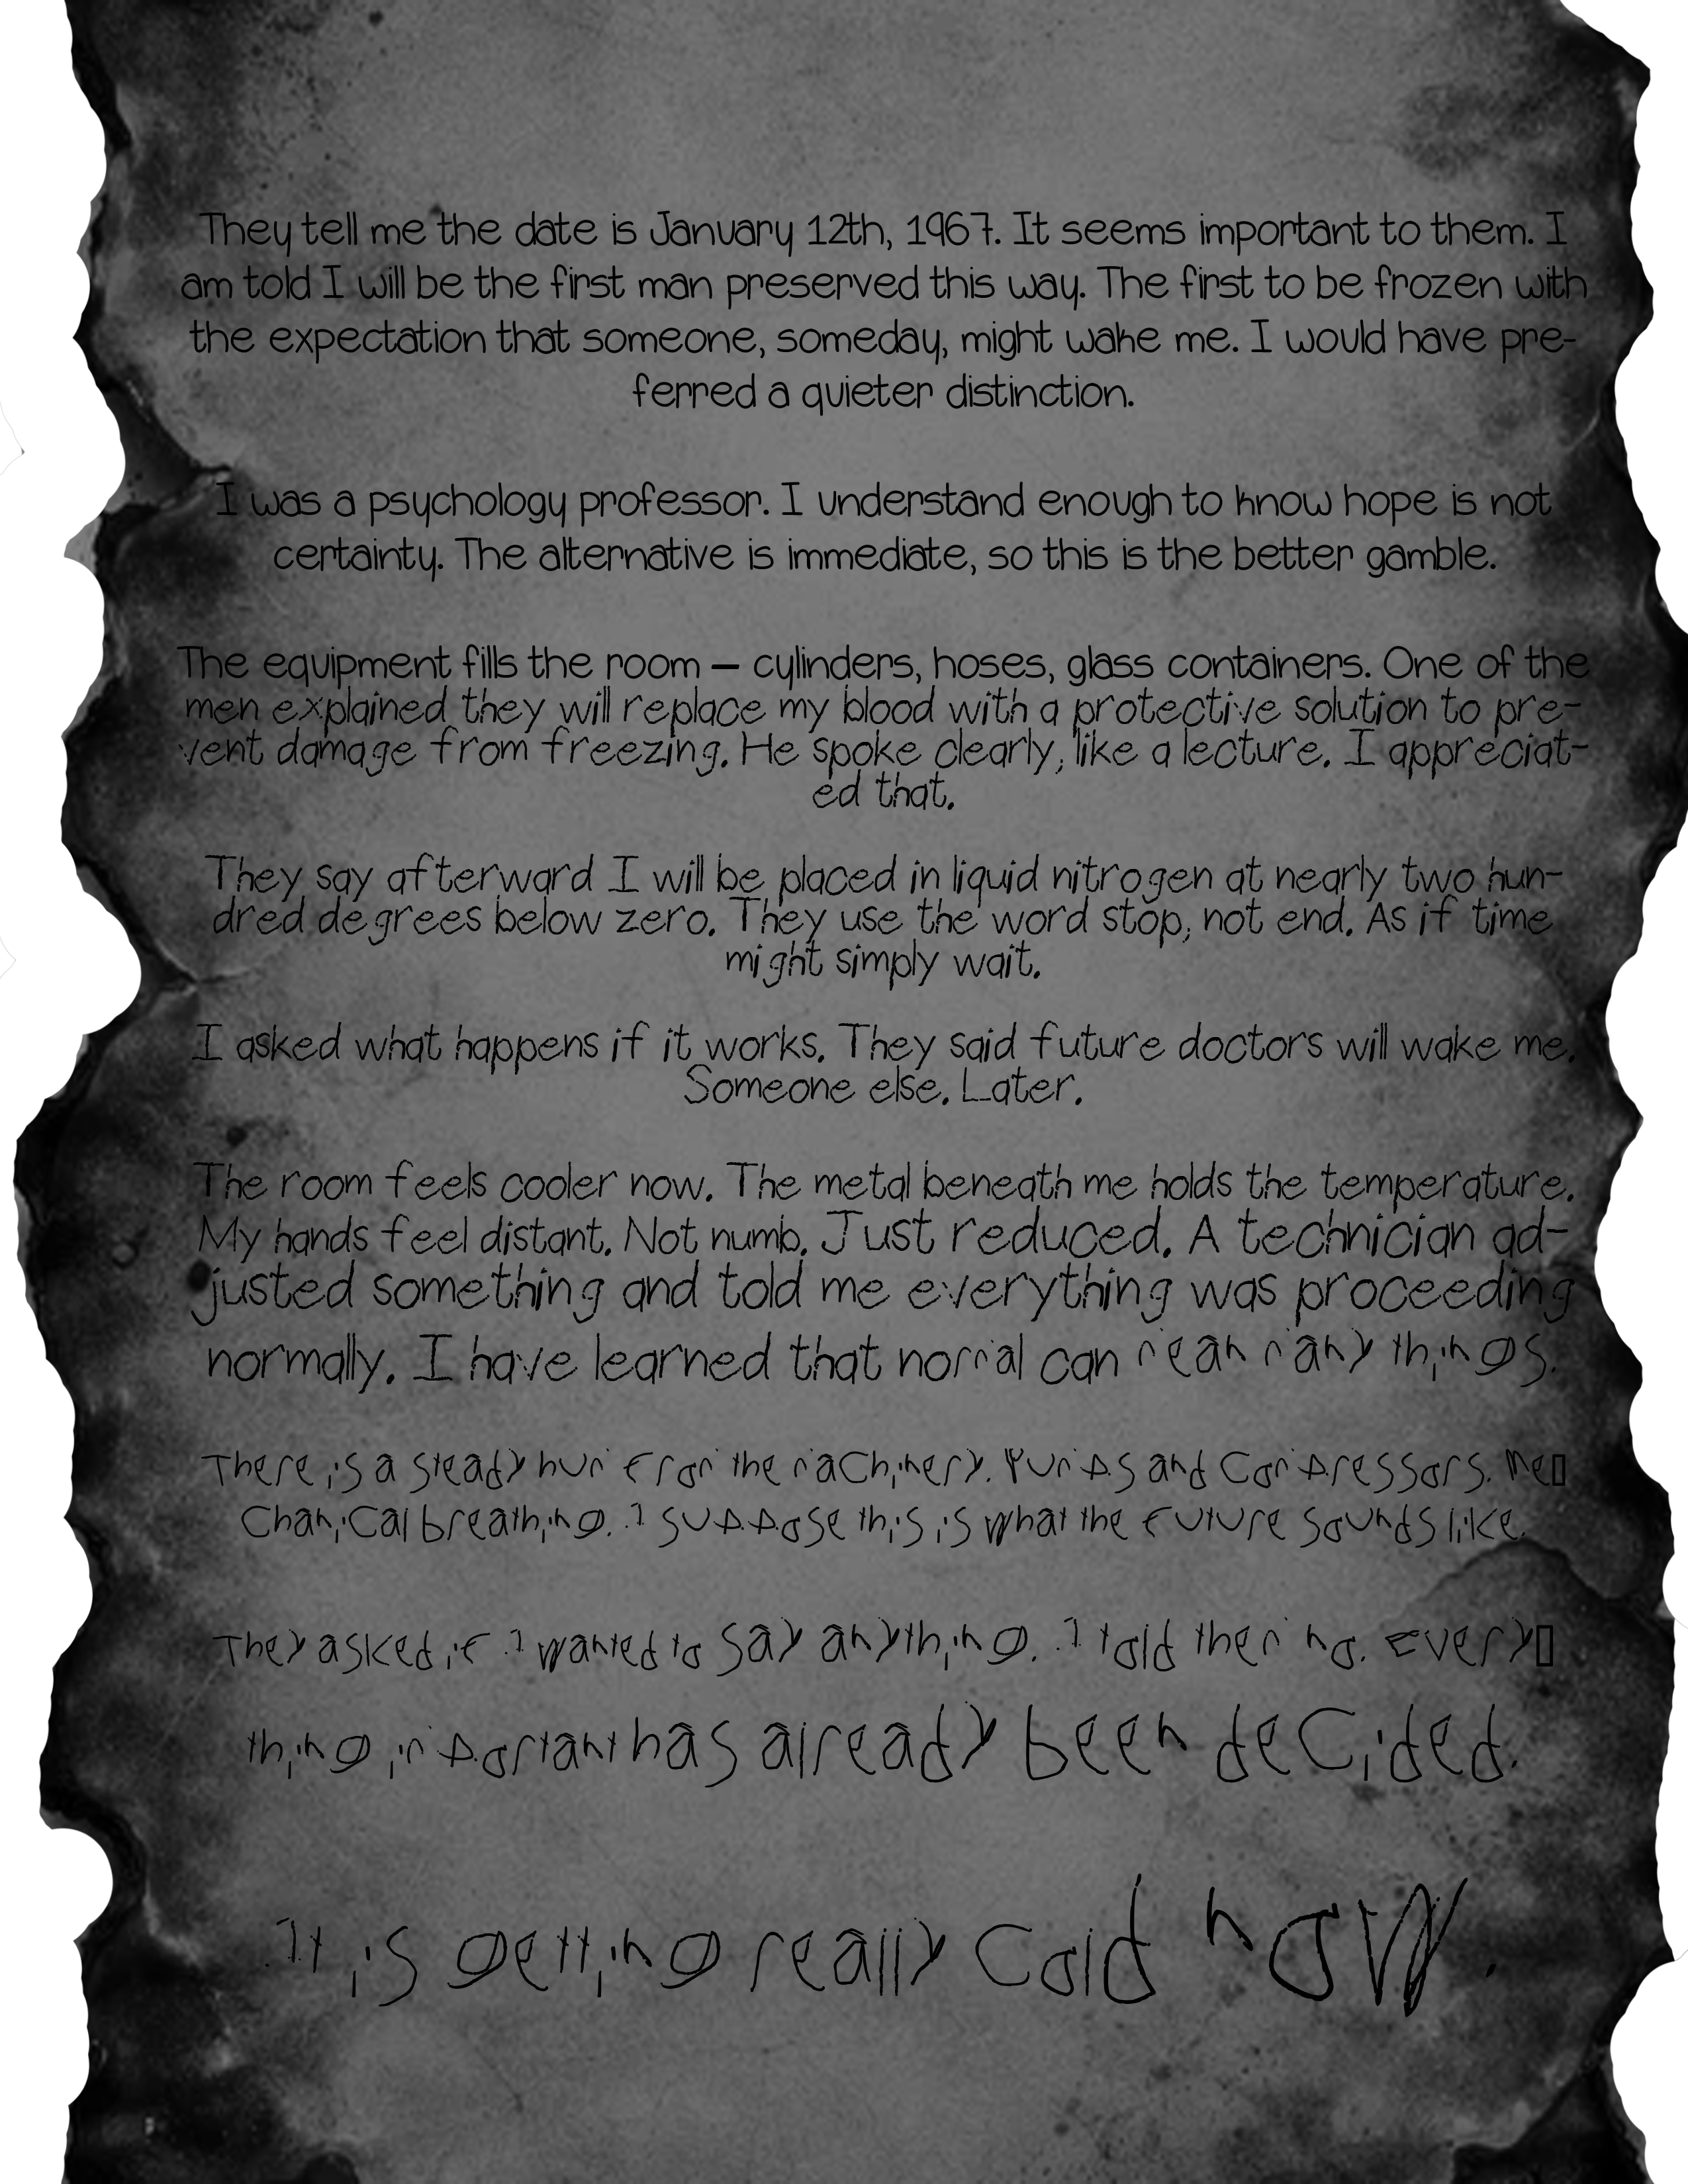 They tell me the date is January 12th, 1967. It seems important to them. I
am told I will be the first man preserved this way. The first to be frozen with
the expectation that someone, someday, might wake me. I would have pre-
ferred a quieter distinction.
I was a psychology professor. I understand enough to know hope is not
certainty. The alternative is immediate, so this is the better gamble.
The equipment fills the room — cylinders, hoses, glass containers. One of the
men explained they will replace my blood with a protective solution to pre-
vent damage from freezing. He spoke clearly, like a lecture. I appreciat-
ed that.
They say afterward I will be placed in liquid nitrogen at nearly two hun-
dred degrees below zero. They use the word stop, not end. As if time
might simply wait.
I asked what happens if it works. They said future doctors will wake me.
Someone else. Later.
The room feels cooler now. The metal beneath me holds the temperature.
My hands feel distant. Not numb. Just reduced. A technician ad-
justed something and told me everything was proceeding
normally. I have learned that normal can mean many things.
There is a steady hum from the machinery. Pumps and compressors. Me▯
chanical breathing. I suppose this is what the future sounds like.
They asked if I wanted to say anything. I told them no. Every▯
thing important has already been decided.
It is getting really cold now.